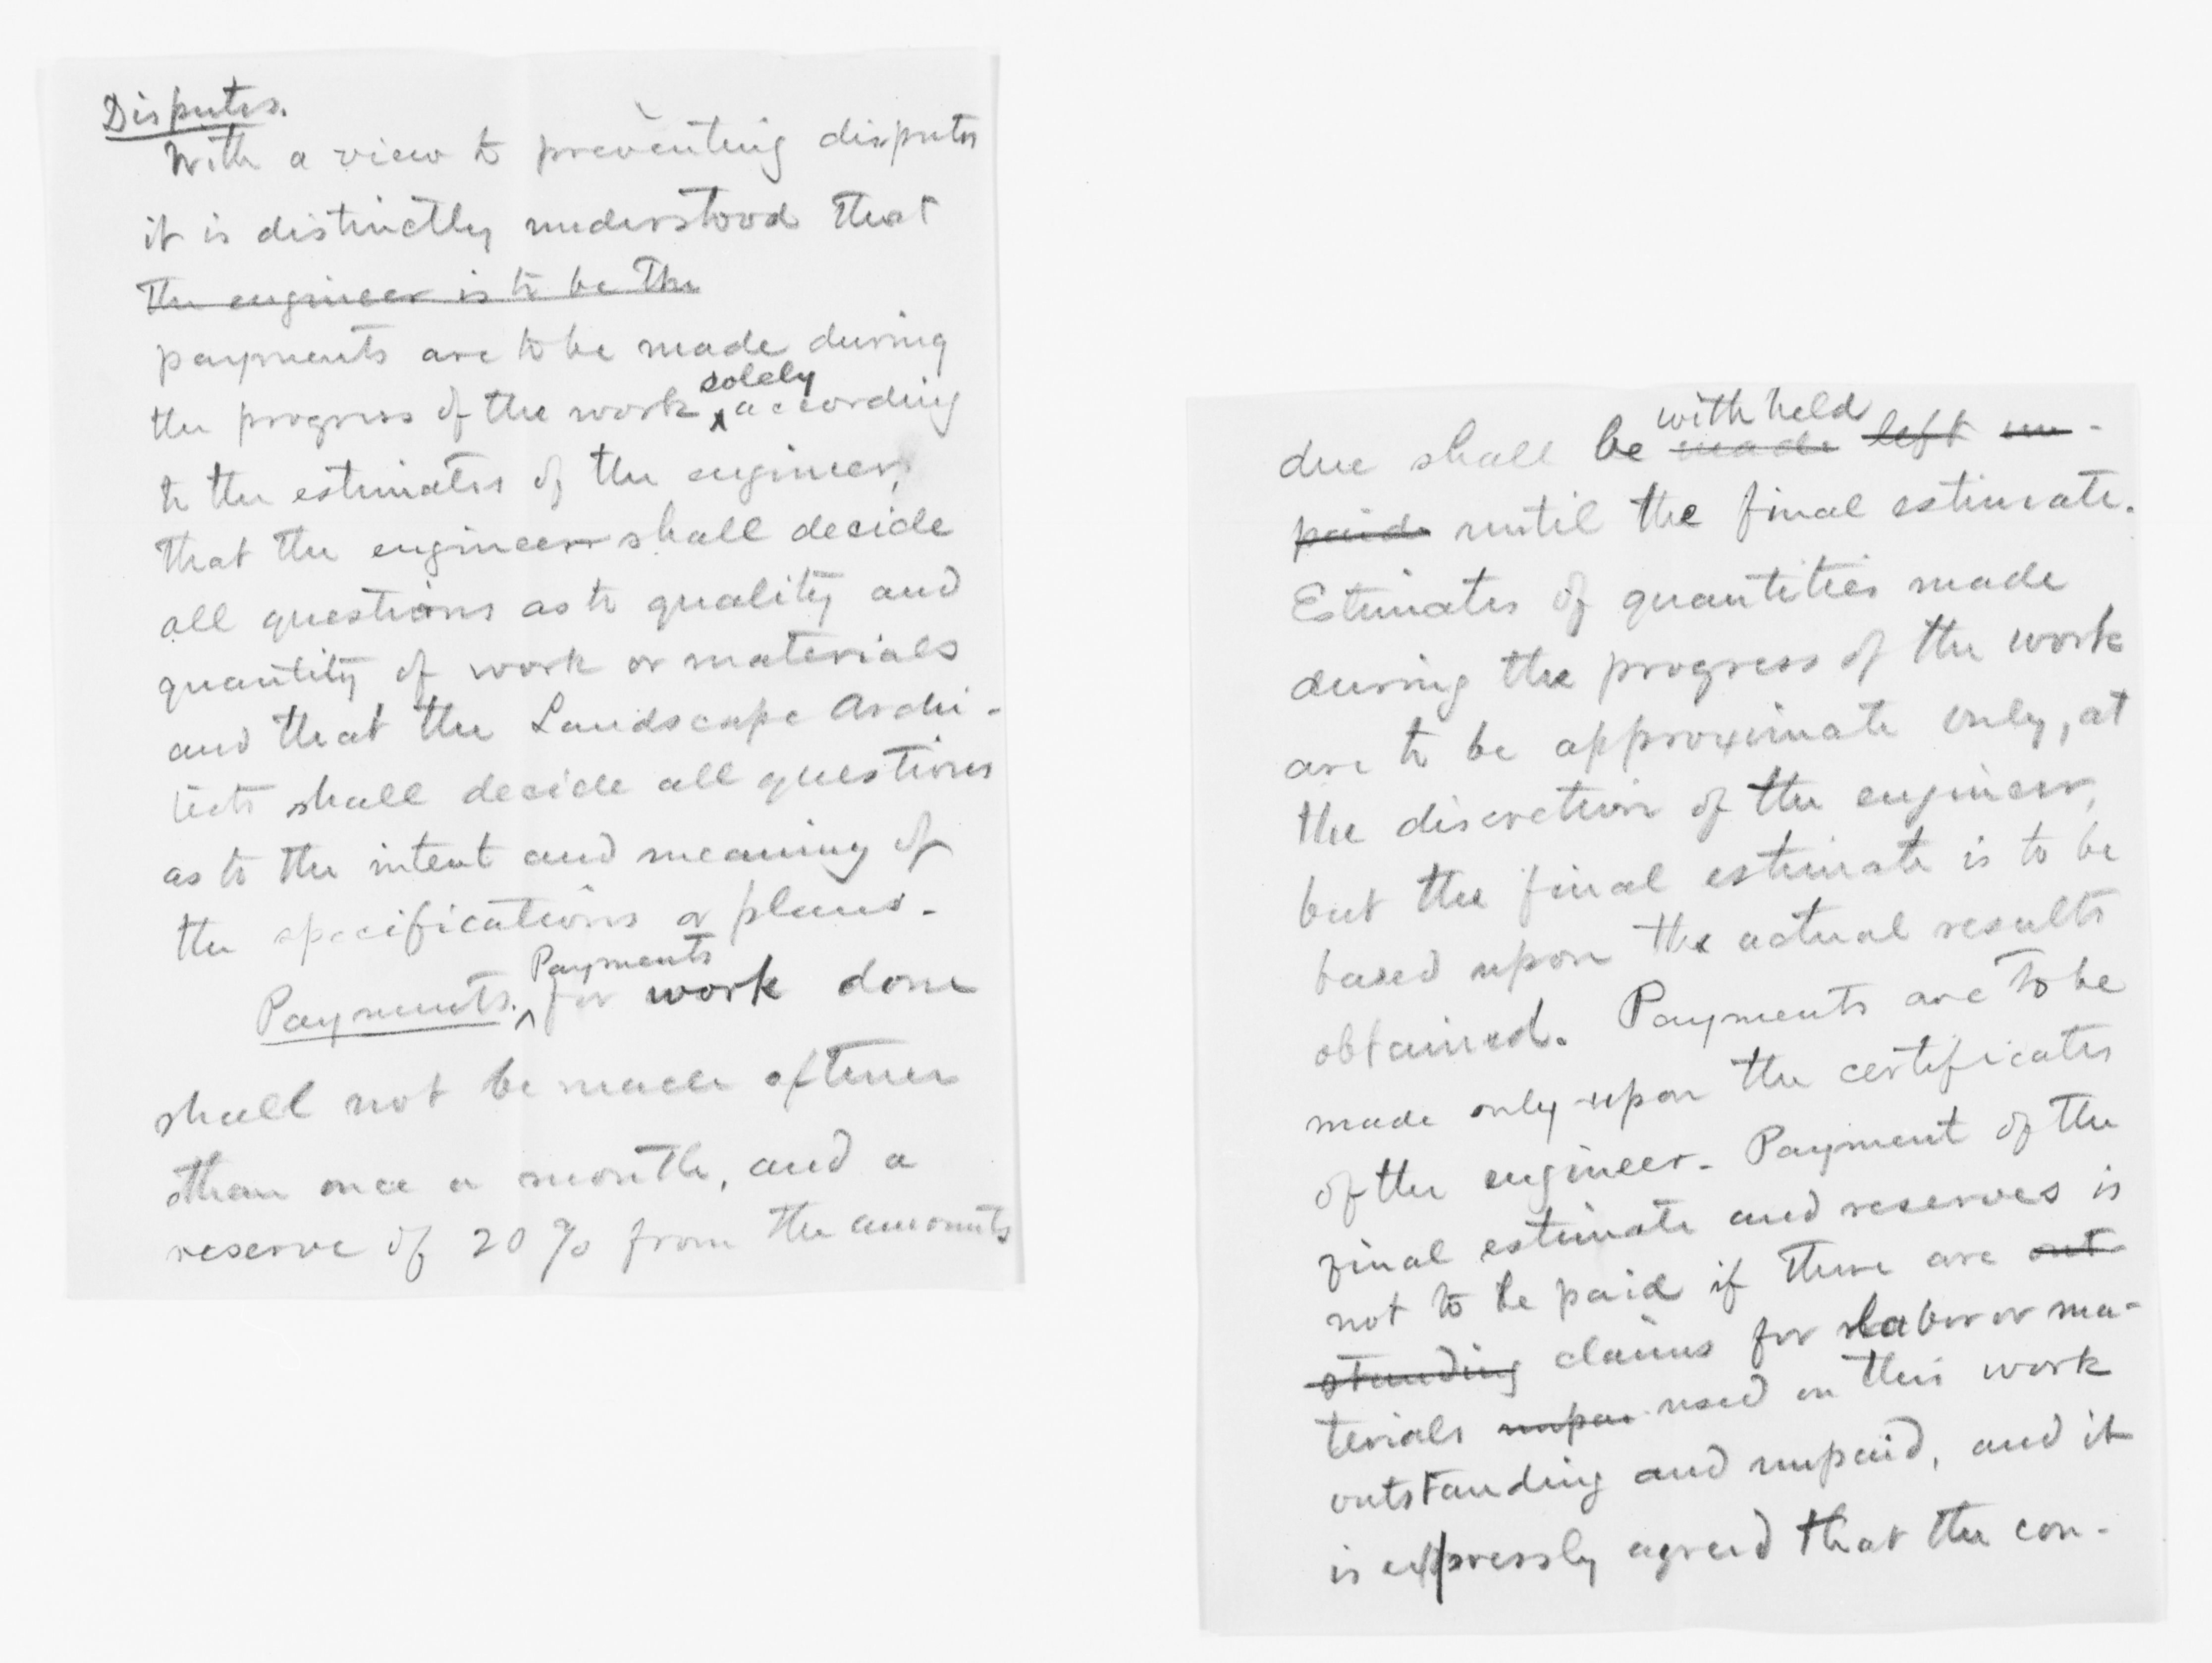 Disputes.
With a view to preventing disputes
it is distinctly understood that
the engineer is to be the
payments are to be made during
solely
the progress of the work according
to the estimates of the engineer,
that the engineer shall decide
all questions as to quality and
quantity of work or materials
and that the Landscape Archi-
tects shall decide all questions
as to the intent and meaning of
the specifications or plans.
Payments
Payments. for work done
shall not be made oftener
than once a month, and a
reserve of 20% from the amounts
withheld
due shall be made left un-
paid until the final estimate.
Estimates of quantities made
during the progress of the work
are to be approximate only, at
the discretion of the engineer,
but the final estimate is to be
based upon the actual results
obtained. Payments are to be
made only upon the certificates
of the engineer. Payment of the
final estimate and reserves is
not to be paid if there are out
standing claims for labor or ma-
terials unpai used on this work
outstanding and unpaid, and it
is expressly agreed that the con-